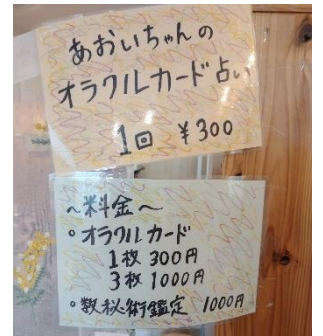 あおいちゃんの
オラクルカード占い
1回 ¥300
～料金～
。オラクルカード
1枚 300円
3枚 1000円
。数秘術鑑定 1000円